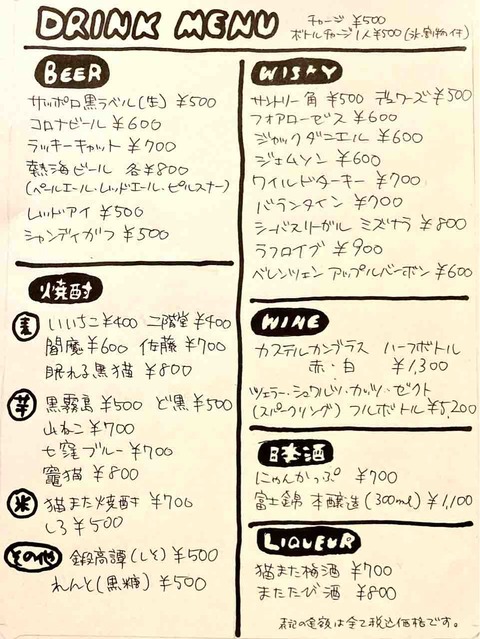 DRINK MENU
チャージ ¥500
ボトルチャージ1人¥500(氷、割物付)
BEER
サッポロ黒ラベル(生) ¥500
コロナビール ¥600
ラッキーキャット ¥700
熱海ビール 各¥800
(ペールエール・レッドエール・ピルスナー)
レッドアイ ¥500
シャンディガフ ¥500
焼酎
麦 いいちこ¥400 二階堂¥400
閻魔¥600 佐藤¥700
眠れる黒猫 ¥800
芋 黒霧島 ¥500 ど黒¥500
山ねこ ¥700
七窪ブルー ¥700
竈猫 ¥800
米 猫また焼酎 ¥700
しろ ¥500
その他 鍛高譚(しそ) ¥500
れんと(黒糖) ¥500
WISKY
サントリー角 ¥500 デュワーズ¥500
フォアローゼス ¥600
ジャックダニエル ¥600
ジェムソン ¥600
ワイルドターキー ¥700
バランタイン ¥700
シーバスリーガル ミズナラ ¥800
ラフロイグ ¥900
ベレンツェン アップルバーボン ¥600
WINE
カステルカングラス ハーフボトル
赤・白 ¥1,300
ツェラー・シュワルツ・カッツ・ゼクト
(スパークリング) フルボトル¥5,200
日本酒
にゃんかっぷ ¥700
富士錦 本醸造(300ml) ¥1,100
LIQUEUR
猫また梅酒 ¥700
またたび酒 ¥800
表記の金額は全て税込価格です。